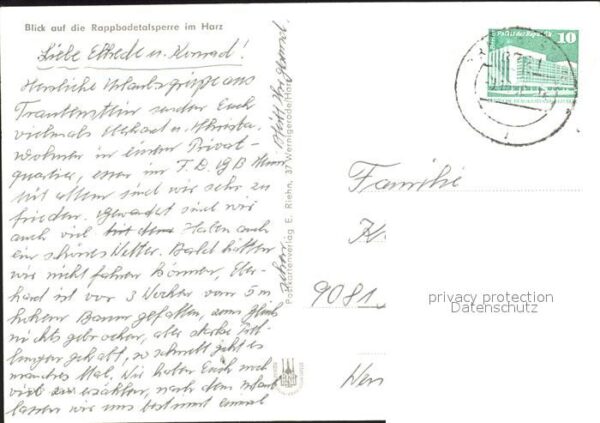 Blick auf die Rappbodetalsperre im Harz
Liebe Elfriede u. Konrad!
Herzliche Urlaubsgrüße aus
Trautenstein senden Euch
vielmals Eberhard u. Christa.
Wohnen in einem Privat-
quartier, essen im F.D.G.B Heim
mit allem sind wir sehr zu
frieden. Gewandert sind wir
auch viel haben auch
ein schönes Wetter. Bald hätten
wir nicht fahren können, Eber-
hard ist vor 3 Wochen vom 5 m
hohen Baum gefallen, zum Glück
nichts gebrochen, aber starke Prel-
lungen gehabt, so schnell geht es
manches Mal. Wir haben Euch noch
viel zu erzählen, nach dem Urlaub
lassen wir uns bestimmt einmal
Postkartenverlag E. Riehn, 37 Wernigerode/Harz
Palast der Republik
10
Familie
9081
privacy protection
Datenschutz